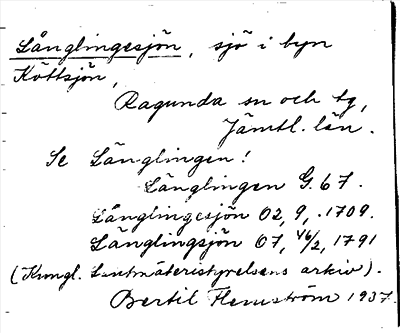 Långlingesjön, sjö i byn
Köttsjön,
Ragunda sn och tg,
Jämtl. län.
Se Länglingen!
Länglingen G. 67.
Långlingesjön 02, 9, 1709.
Långlingsjön 07, 46/2, 1791
(Kungl. Lantmäteristyrelsens arkiv).
Bertil Flemström 1937.